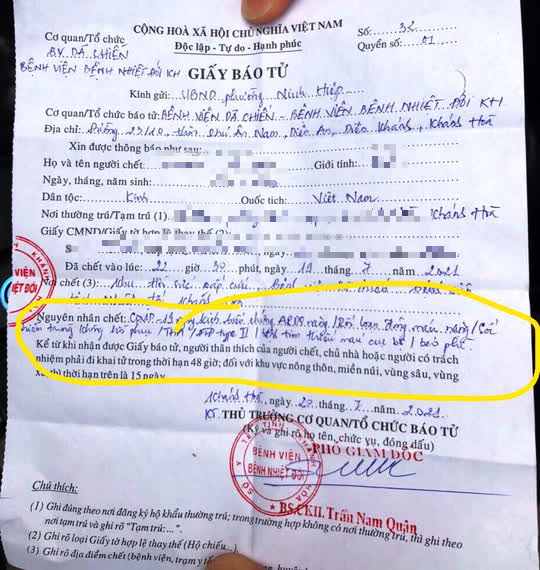 CỘNG HOÀ XÃ HỘI CHỦ NGHĨA VIỆT NAM
Độc lập - Tự do - Hạnh phúc
Số: 32
Quyển số: 01
Cơ quan/Tổ chức
BV DÃ CHIẾN
BỆNH VIỆN BỆNH NHIỆT ĐỚI KH
GIẤY BÁO TỬ
Kính gửi: UBND phường Ninh Hiệp
Cơ quan/Tổ chức báo tử: BỆNH VIỆN DÃ CHIẾN - BỆNH VIỆN BỆNH NHIỆT ĐỚI KH
Địa chỉ: Đường 23/10, thôn Phú Ân Nam, Diên An, Diên Khánh, Khánh Hoà
Xin được thông báo như sau:
Họ và tên người chết: Giới tính:
Ngày, tháng, năm sinh:
Dân tộc: Kinh Quốc tịch: Việt Nam
Nơi thường trú/Tạm trú (1): Khánh Hoà
Giấy CMND/Giấy tờ hợp lệ thay thế (2):
Đã chết vào lúc: 22 giờ phút, 19 tháng 7 năm 2021
Nơi chết (3): Khu hồi sức cấp cứu, bệnh viện
Nguyên nhân chết: biến chứng ARDS nặng / Rối loạn đông máu nặng / Sốc
nhiễm trùng không hồi phục / type II / tim thiếu máu cục bộ /
Kể từ khi nhận được Giấy báo tử, người thân thích của người chết, chủ nhà hoặc người có trách
nhiệm phải đi khai tử trong thời hạn 48 giờ; đối với khu vực nông thôn, miền núi, vùng sâu, vùng
xa thì thời hạn trên là 15 ngày.
Khánh Hoà, ngày 20 tháng 7 năm 2021
KT THỦ TRƯỞNG CƠ QUAN/TỔ CHỨC BÁO TỬ
(Ký và ghi rõ họ tên, chức vụ, đóng dấu)
PHÓ GIÁM ĐỐC
BỆNH VIỆN
BỆNH NHIỆT ĐỚI
BS.CKII. Trần Nam Quân
Chú thích:
(1) Ghi đúng theo nơi đăng ký hộ khẩu thường trú; trong trường hợp không có nơi thường trú, thì ghi theo
nơi tạm trú và ghi rõ "Tạm trú:...".
(2) Ghi rõ loại Giấy tờ hợp lệ thay thế (Hộ chiếu...).
(3) Ghi rõ địa điểm chết (bệnh viện, trạm y tế